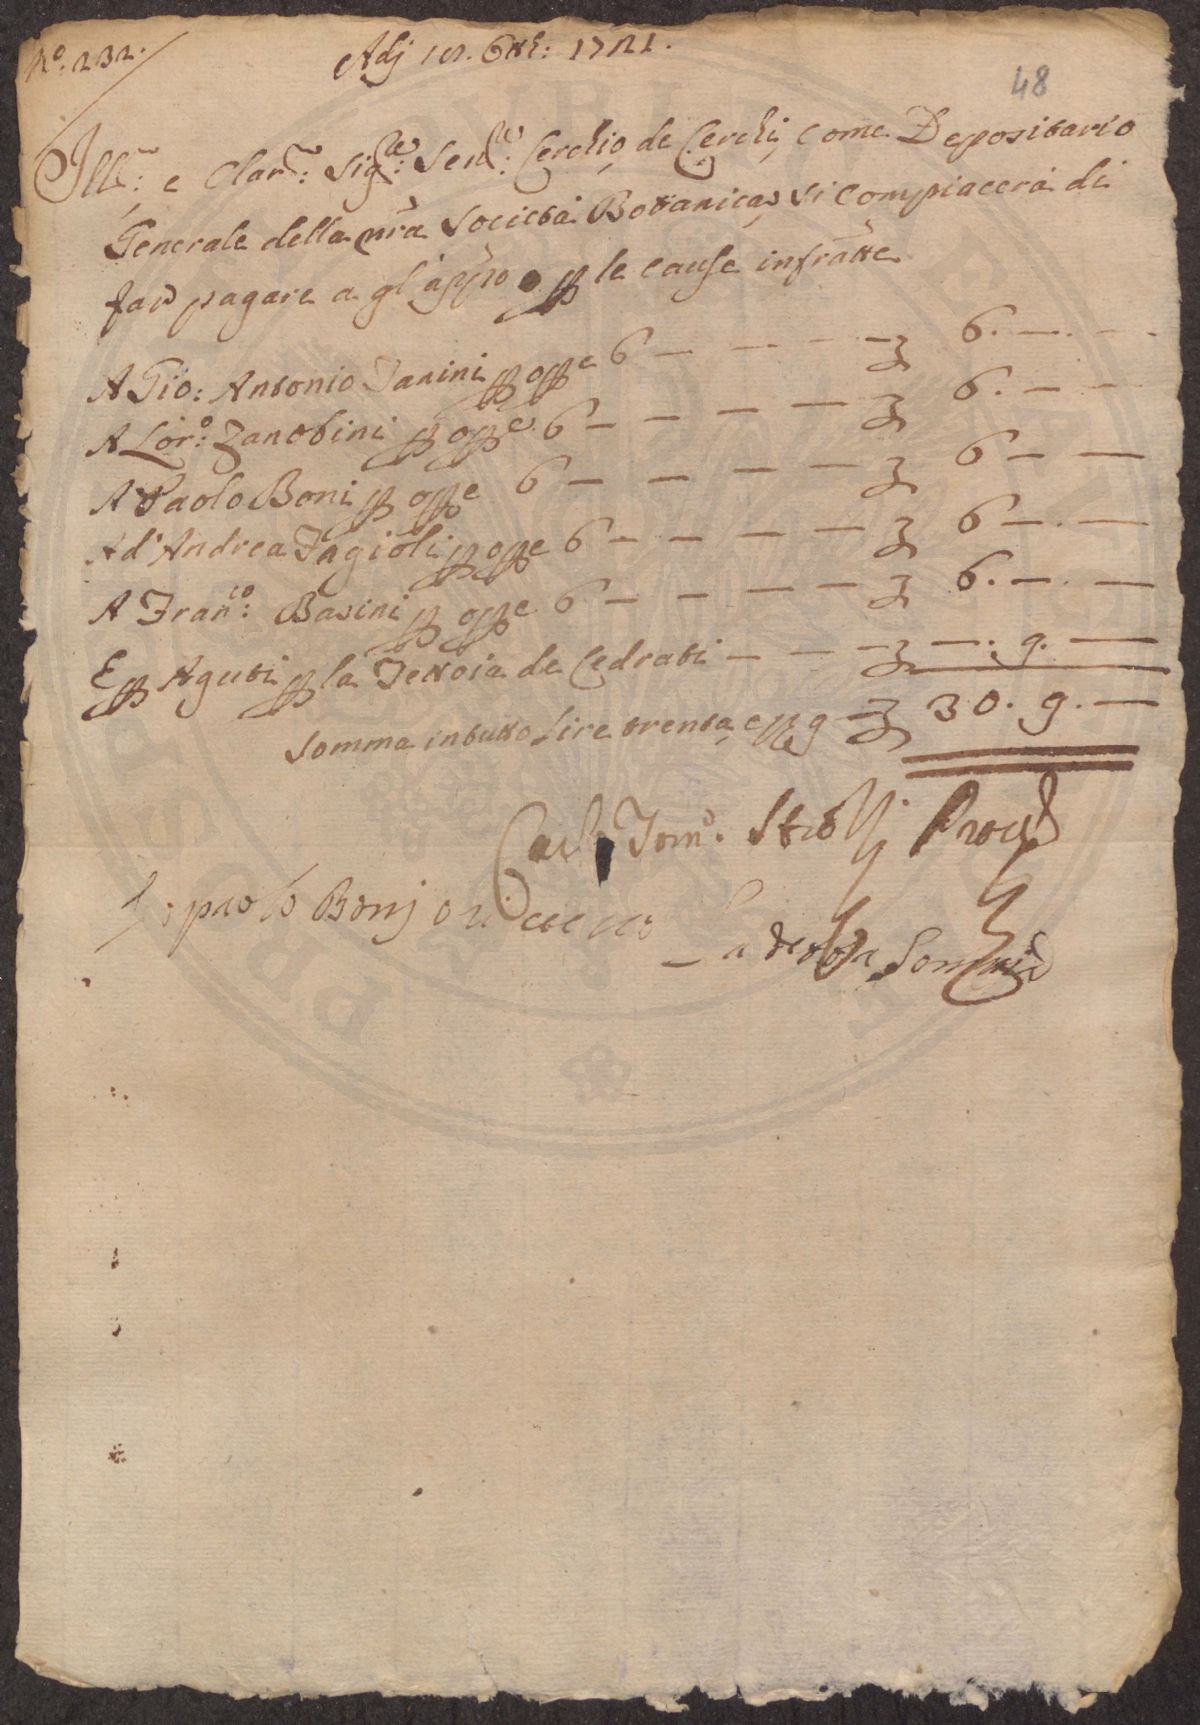 N°: 232.
Adj 18. 8bre: 1721.
48
Ill:mo e Clar:mo Sig:re Sen:re Cerchio de Cerchi, come Depositario
Generale della nra Società Bottanica, si compiacerà di
far pagare a gl'appo p le cause infratte
A Gio: Antonio Janini p opre 6 — — — — £ 6. — . —
A Lor:o Zanobini p opre 6 — — — — £ 6. — —
A Paolo Boni p opre 6 — — — — £ 6 — —
Ad' Andrea Fagioli p opre 6 — — — — £ 6 — . —
A Fran:co Basini p opre 6 — — — — £ 6. — . —
E p Aguti p la Tettoia de Cedrati — — — £ — . 9. —
Somma in tutto Lire trenta, e 9 — £ 30. 9. —
Tom:o Prov:re
Io paolo Bonj o ricevuto
la detta Somma